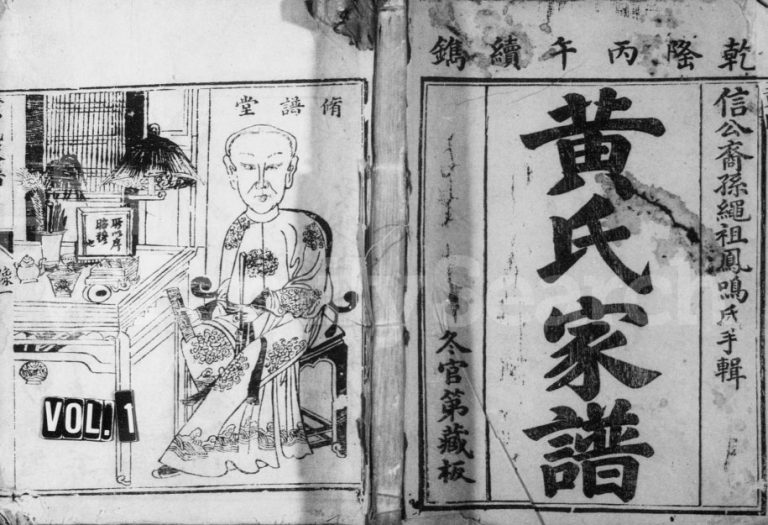 乾隆丙午續鐫
信公裔孫繩祖鳳鳴氏手輯
黄氏家譜
冬官第藏板
脩譜堂
VOL. 1